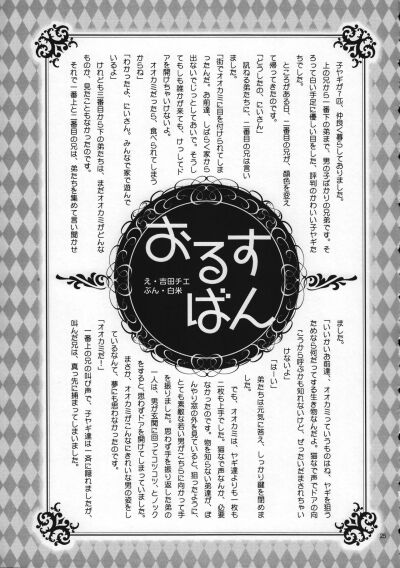 子ヤギが7匹、仲良く暮らしておりました。
上の兄から一番下の弟まで、男の子ばかりの兄弟です。そ
ろって白い手足に優しい目をした、評判のかわいい子ヤギた
ちでした。
ところがある日、二番目の兄が、顔色を変え
て帰ってきたのです。
「どうしたの、にいさん」
訊ねる弟たちに、二番目の兄は言い
ました。
「街でオオカミに目を付けられてしま
ったんだ。お前達、しばらく家から
出ないでじっとしておいで。そうし
てもしも誰かが来ても、けっしてド
アを開けちゃいけないよ。
オオカミだったら、食べられてしまう
からね」
「わかったよ、にいさん。みんなで家で遊んで
いるよ」
けれども三番目から下の弟たちは、まだオオカミがどんな
ものか、見たこともなかったのです。
それで一番上と二番目の兄は、弟たちを集めて言い聞かせ
おるす
ばん
え・吉田チエ
ぶん・白米
ました。
「いいかいお前達、オオカミっていうものはね、ヤギを狙う
ためなら何だってする生き物なんだよ。猫なで声でドアの向
こうから呼ぶかも知れないけど、ぜったいだまされちゃい
けないよ」
「はーい」
弟たちは元気に答え、しっかり鍵を閉めま
した。
でも、オオカミは、ヤギ達よりも一枚も
二枚も上手でした。猫なで声なんか、必要
なかったのです。物を知らない弟達が、ぼ
んやり窓の外を見ていると、狙ったように
とても素敵な若い男がこちらに向かって手
を振りました。思わず手を振り返した弟の
一人は、男が玄関に回ってコツコツ、とノック
をすると、思わずドアを開けてしまっていました。
まさか、オオカミがこんなにきれいな男の姿をし
ているなんて、夢にも思わなかったのです。
「オオカミだー！」
一番上の兄の叫び声で、子ヤギ達は一斉に隠れましたが、
叫んだ兄は、真っ先に捕まってしまいました。
25